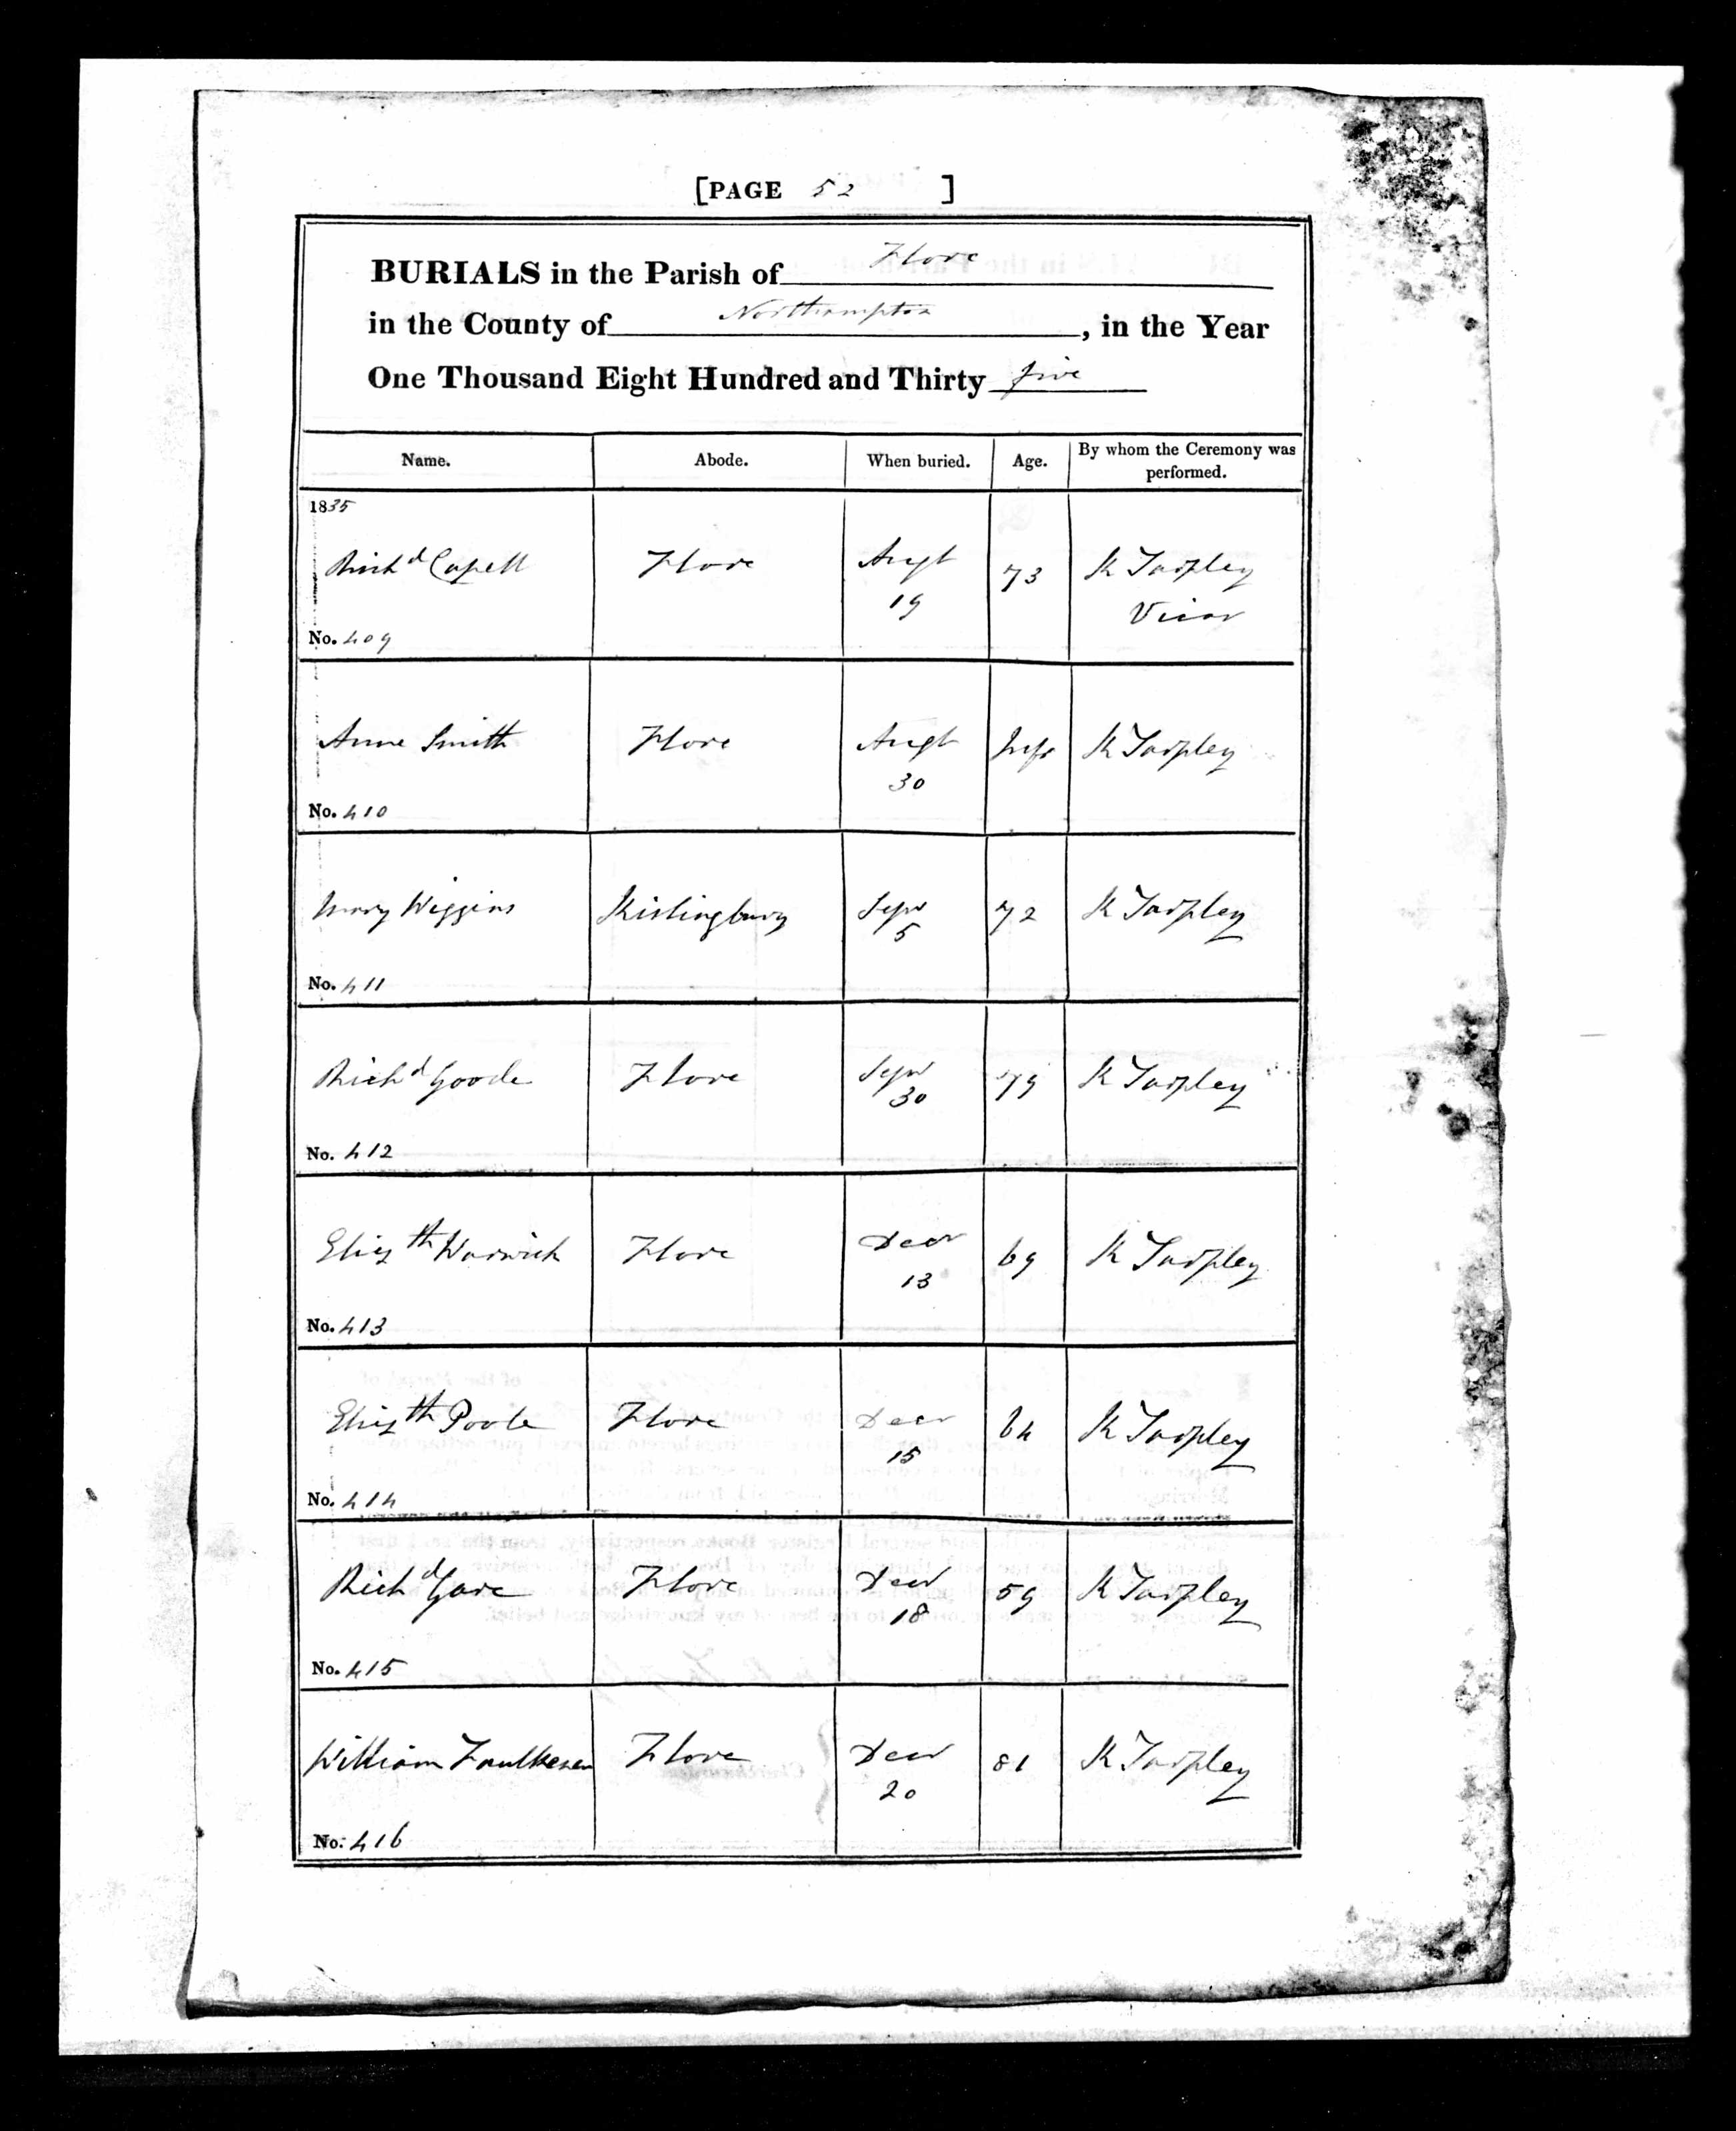 [PAGE 52 ]
BURIALS in the Parish of Flore
in the County of Northampton, in the Year
One Thousand Eight Hundred and Thirty five
Name. Abode. When buried. Age. By whom the Ceremony was performed.
1835
Richd Capell Flore Augt 19 73 K Tarpley Vicar
No. 409
Anne Smith Flore Augt 30 Inft K Tarpley
No. 410
Mary Wiggins Kislingbury Sepr 5 72 K Tarpley
No. 411
Richd Goode Flore Sepr 30 79 K Tarpley
No. 412
Elizth Warwick Flore Decr 13 69 K Tarpley
No. 413
Elizth Poole Flore Decr 15 64 K Tarpley
No. 414
Richd Gare Flore Decr 18 59 K Tarpley
No. 415
William Flore Decr 20 81 K Tarpley
No. 416